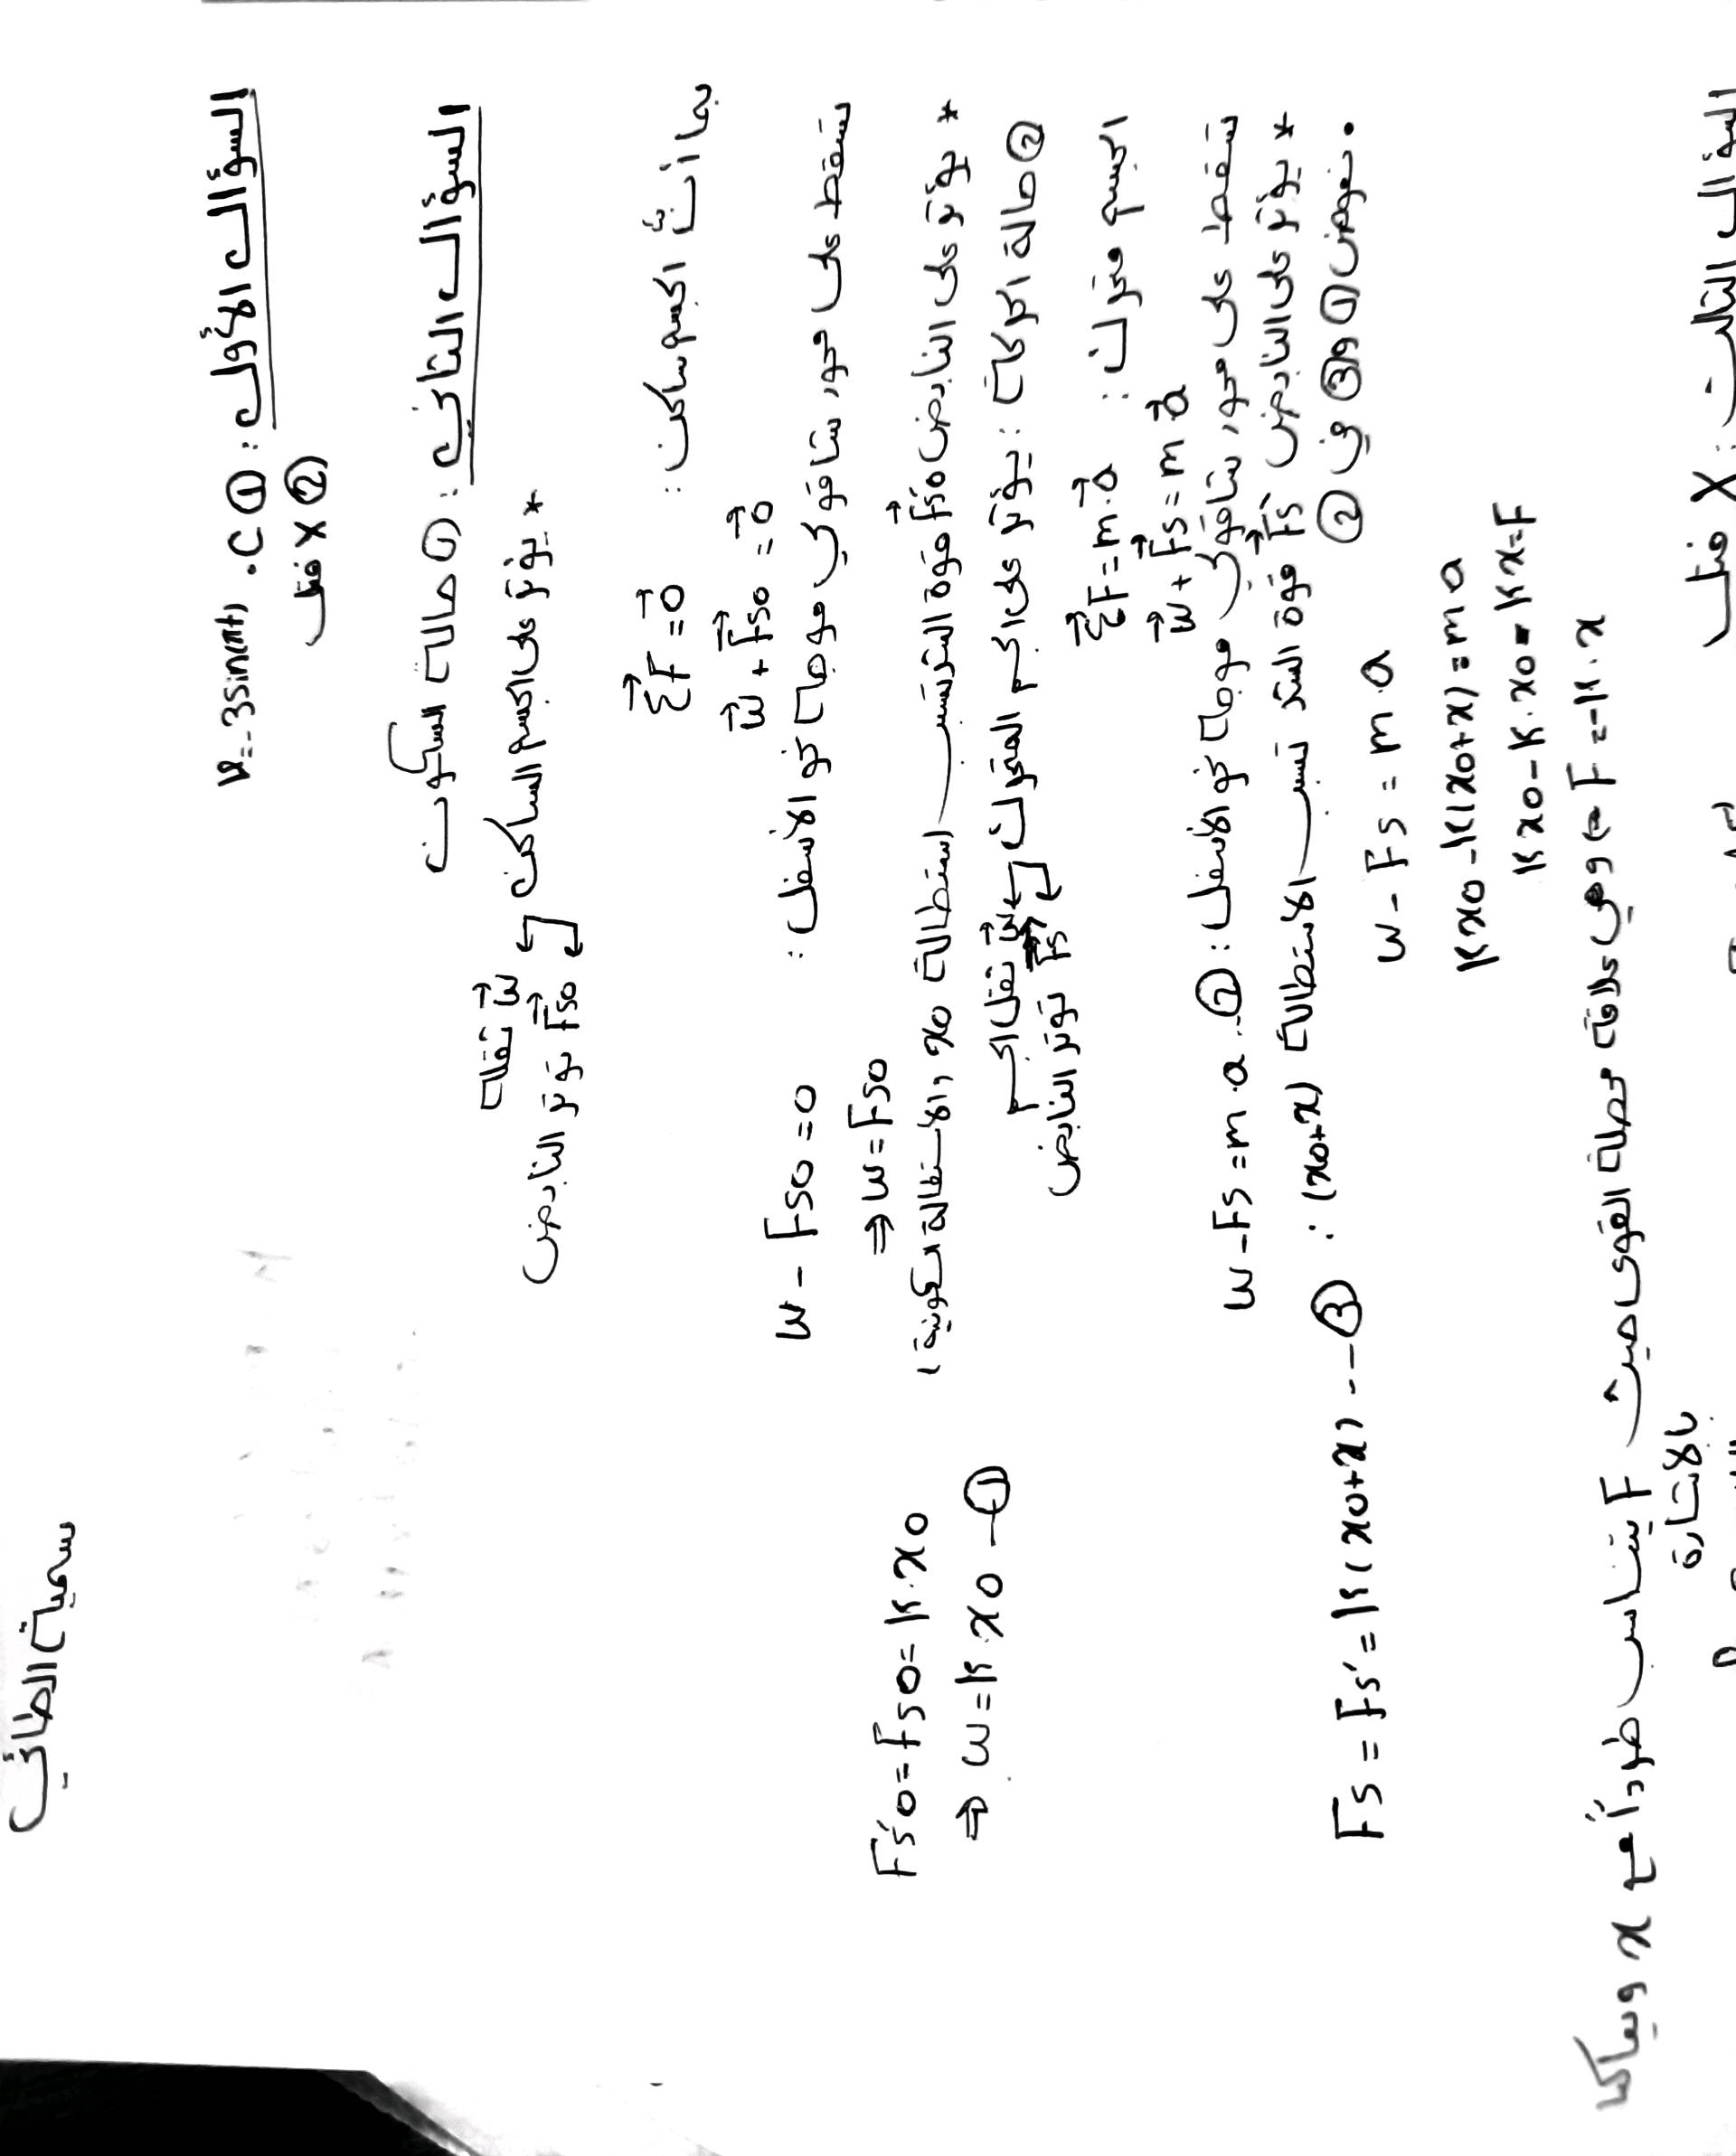 سمية الطاني
السؤال الأول : ① C . v=-3sin(πt)
② X
السؤال الثاني : ① حالة السكون
* يؤثر على الجسم الساكن w⃗ ثقله
F⃗s0 توتر النابض
بما أنّ الجسم ساكن :
Σ⃗F = 0⃗
w⃗ + F⃗s0 = 0⃗
نسقط على محور شاقولي موجه نحو الأسفل :
w - Fs0 = 0
⇒ w = Fs0
* يؤثر على النابض F⃗s'0 قوة التي تسبب استطالة x0 (الاستطالة السكونية)
Fs'0 = Fs0 = k.x0
⇒ w = k.x0 - ①
② حالة الحركة : يؤثر على الجسم المتحرك w⃗ ثقل الجسم
F⃗s توتر النابض
الجسم متحرك :
Σ⃗F = m.a⃗
w⃗ + F⃗s = m.a⃗
نسقط على محور شاقولي موجه نحو الأسفل :
w - Fs = m.a .. ②
* يؤثر على النابض F⃗s' قوة الشد تسبب الاستطالة (x0+x) :
Fs = Fs' = k(x0+x) -- ③
• نعوض ① و ③ في ②
w - Fs = m.a
kx0 - k(x0+x) = ma
kx0 - k.x0 - kx = F
F = -k.x وهي علاقة محصلة القوى حيث F يتناسب طرداً مع x
بالإشارة
السؤال الثالث : X